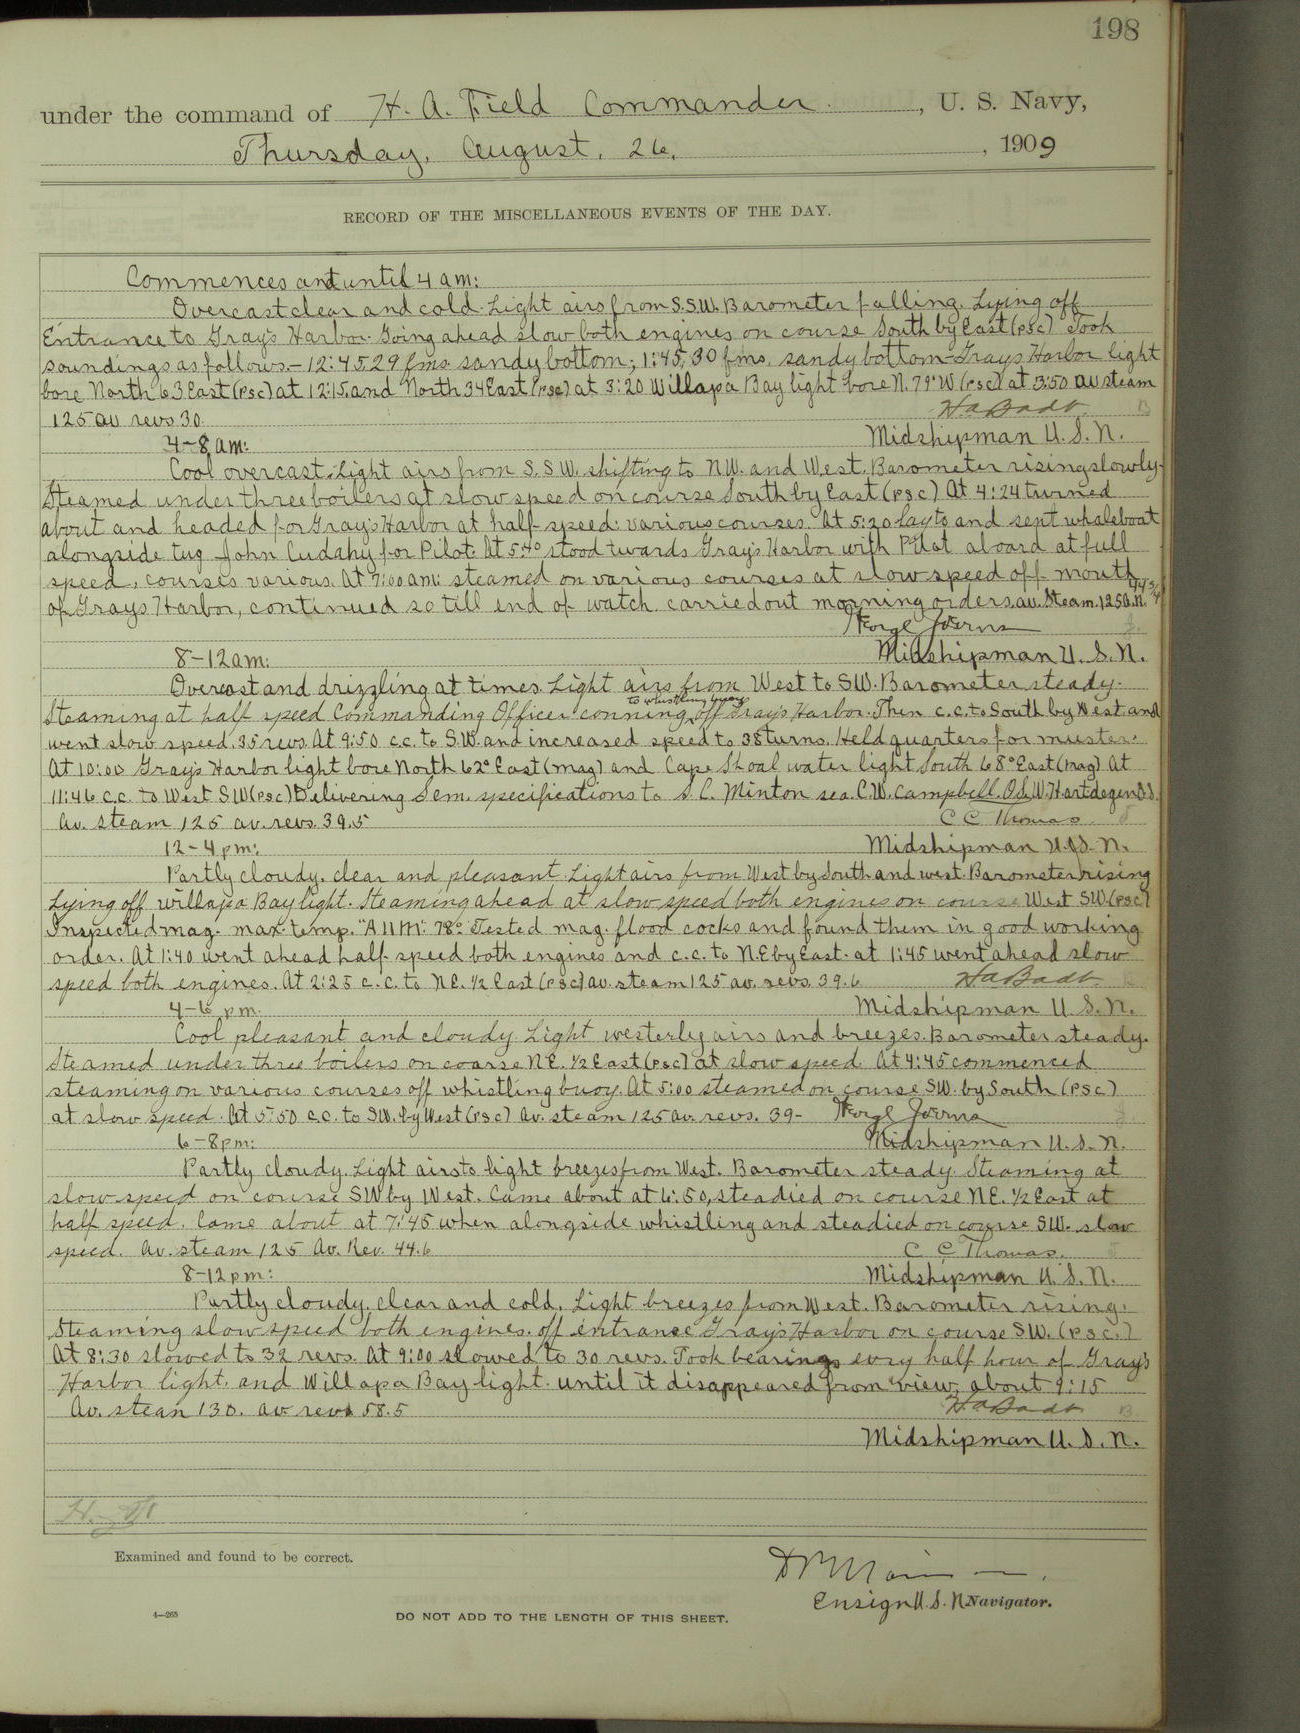 198
under the command of H. A. Field Commander , U. S. Navy,
Thursday, August, 26, , 1909
RECORD OF THE MISCELLANEOUS EVENTS OF THE DAY.
Commences and until 4 am:
Overcast clear and cold. Light airs from S.S.W. Barometer falling. Lying off
Entrance to Gray's Harbor. Going ahead slow both engines on course South by East (psc) Took
soundings as follows.- 12:45, 29 fms. sandy bottom; 1:45, 30 fms. sandy bottom - Grays Harbor light
bore North 63 East (psc) at 12:15, and North 34 East (psc) at 3:20 Willapa Bay light bore N. 79° W (psc) at 3:50 av steam
125 av revs 30.
H a Badt
Midshipman U. S. N.
4-8 am:
Cool overcast. Light airs from S. S W. shifting to N.W. and West. Barometer rising slowly.
Steamed under three boilers at slow speed on course South by East (psc) At 4:24 turned
about and headed for Gray's Harbor at half speed. various courses. At 5:20 lay to and sent whaleboat
alongside tug John Cudahy for Pilot. At 5:40 stood twards Gray's Harbor with Pilot aboard at full
speed, courses various. At 7:00 am: steamed on various courses at slow speed off mouth
of Grays Harbor, continued so till end of watch. carried out morning orders. av. Steam. 125
Midshipman U. S. N.
8-12 am:
Overcast and drizzling at times. Light airs from West to SW. Barometer steady.
to whistling buoy
Steaming at half speed Commanding Officer conning off Gray's Harbor. Then c.c. to South by West and
went slow speed. 35 revs. At 9:50 c.c. to S.W. and increased speed to 38 turns. Held quarters for muster.
At 10:00 Gray's Harbor light bore North 62° East (mag) and Cape Shoal water light South 68° East (mag) At
11:46 c.c. to West SW (psc) Delivering Sem. specifications to S. C. Minton sea. C.W. Campbell. O.S. W. Hartdegen O.S.
Av. steam 125 av. revs. 39.5
C C Thomas
Midshipman U.S. N.
12-4 pm:
Partly cloudy. clear and pleasant. Light airs from West by South and west. Barometer rising
Lying off willapa Bay light. Steaming ahead at slow speed both engines on course West SW (psc)
Inspected mag. max. temp. "A 11 M". 78° Tested mag. flood cocks and found them in good working
order. At 1:40 went ahead half speed both engines and c.c. to N.E by East. at 1:45 went ahead slow
speed both engines. At 2:25 c.c. to N.E. ½ East (psc) av. steam 125 av. revs. 39.6
H a Badt
Midshipman U. S. N.
4-6 pm.
Cool pleasant and cloudy. Light westerly airs and breezes. Barometer steady.
Steamed under three boilers on coarse N E. ½ East (psc) at slow speed. At 4:45 commenced
steaming on various courses off whistling buoy. At 5:00 steamed on course SW. by South (psc)
at slow speed. At 5:50 c.c. to SW. by West (psc) Av. steam 125 av. revs. 39-
Midshipman U. S. N.
6-8 pm:
Partly cloudy. Light airs to light breezes from West. Barometer steady. Steaming at
slow speed on course SW by West. Came about at 6:50, steadied on course N.E. ½ East at
half speed. Came about at 7:45 when alongside whistling and steadied on course S.W. slow
speed. Av. steam 125 Av. Rev. 44.6
C C Thomas.
Midshipman U. S. N.
8-12 pm:
Partly cloudy, clear and cold. Light breezes from West. Barometer rising.
Steaming slow speed both engines. off entrance Gray's Harbor on course S.W. (psc.)
At 8:30 slowed to 32 revs. At 9:00 slowed to 30 revs. Took bearings evry half hour of Gray's
Harbor light. and Willapa Bay light. until it disappeared from view, about 9:15
Av. stean 130. av revs 58.5
H a Badt
Midshipman U. S. N.
Examined and found to be correct.
Ensign U. S. N. Navigator.
4-265
DO NOT ADD TO THE LENGTH OF THIS SHEET.